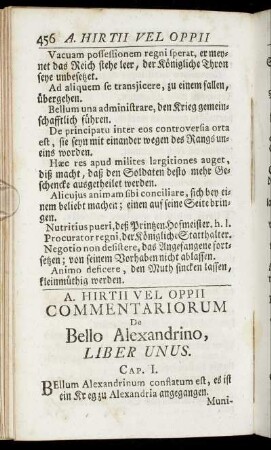 456 A. HIRTII VEL OPPII
Vacuam possessionem regni sperat, er mey-
net das Reich stehe leer, der Königliche Thron
seye unbesetzt.
Ad aliquem se transjicere, zu einem fallen,
übergehen.
Bellum una administrare, den Krieg gemein-
schafftlich führen.
De principatu inter eos controversia orta
est, sie seyn mit einander wegen des Rangs un-
eins worden.
Hæc res apud milites largitiones auger,
diß macht, daß den Soldaten desto mehr Ge-
schencke ausgetheilet werden.
Alicujus animam sibi conciliare, sich bey ei-
nem beliebt machen; einen auf seine Seite brin-
gen.
Nutritius pueri, deß Printzen-Hofmeister. h. l.
Procurator regni, der Königliche Statthalter.
Negotio non desistere, das Angefangene fort-
setzen; von seinem Vorhaben nicht ablassen.
Animo deficere, den Muth sincken lassen,
kleinmüthig werden.
A. HIRTII VEL OPPII
COMMENTARIORUM
De
Bello Alexandrino,
LIBER UNUS.
CAP. I.
BEllum Alexandrinum conflatum est, es ist
ein Kr eg zu Alexandria angegangen.
Muni-